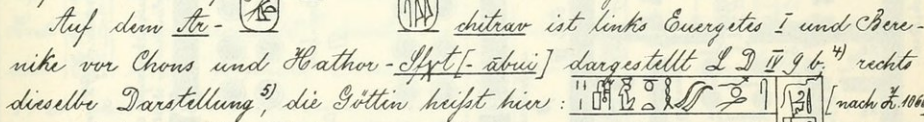 Auf dem Ar- chitrav ist links Euergetes I und Bere-
nike vor Chons und Hathor - Sfxt [- ābui] dargestellt L D IV 9 b.⁴⁾ rechts
dieselbe Darstellung⁵⁾, die Göttin heißt hier: [nach Z. 106